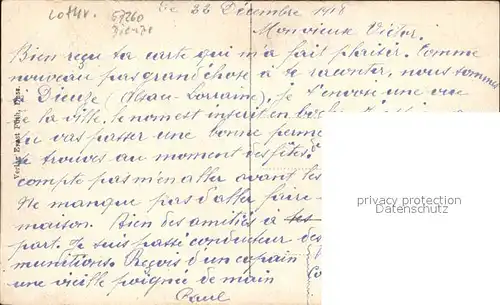 Lothr.
57260
Dieuze
Le 22 Décembre 1918
Monvieux Victor.
Bien reçu ta carte qui m'a fait plaisir. Comme
nouveau pas grandchose à te raconter, nous sommes
à Dieuze (Alsace Lorraine). Je t'envoie une vue
de la ville. Le nom est inscrit en
tu vas passer une bonne perme
te trouves au moment des fêtes.
compte pas m'en aller avant les
Ne manque pas d'aller faire
maison. Bien des amitiés à
part. Je suis passé conducteur des
munitions. Reçois d'un copain
une vieille poignée de main
Paul
Verlag Ernst
privacy protection
Datenschutz